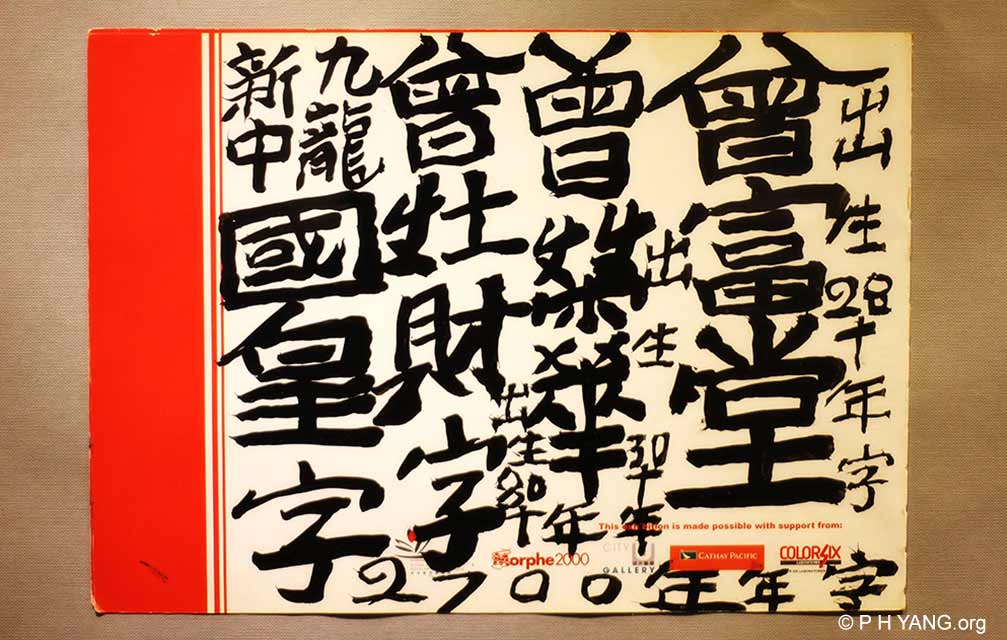 出生28十年字
曾富堂
出生30十年
曾榮華
出生80十年
曾灶財字
九龍
新中國皇字
2700年年字
is made possible with support from:
Morphe2000
CITY
GALLERY
CATHAY PACIFIC
COLORSIX
© P H YANG.org